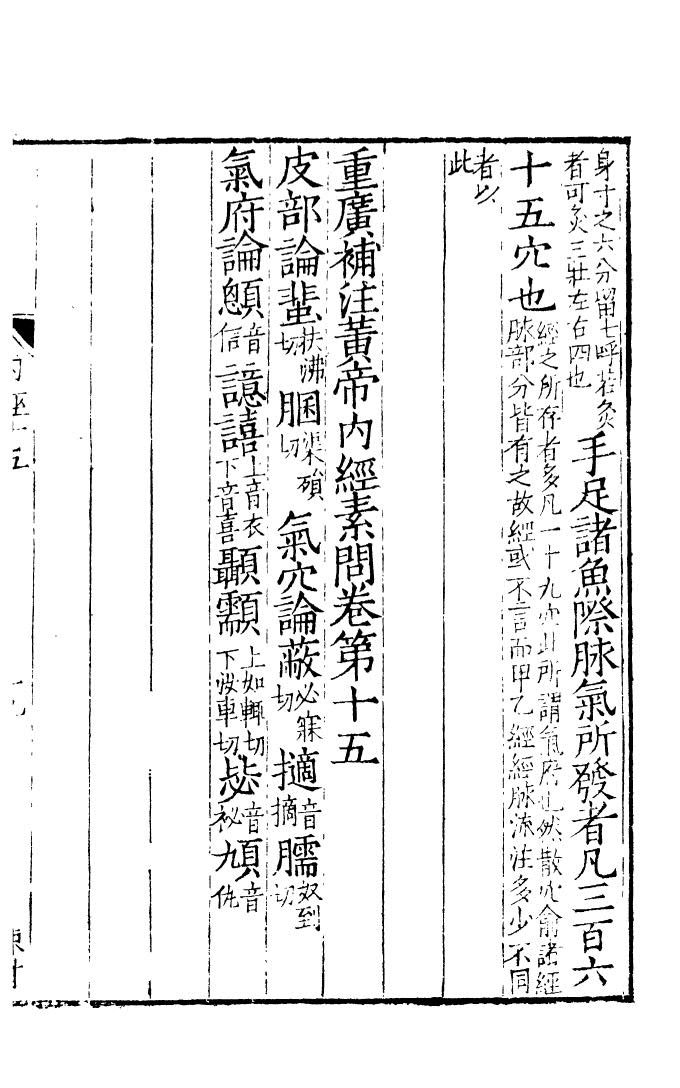 身寸之六分留七呼若灸者可灸三壯左右四也手足諸魚際脉氣所發者凡三百六
十五穴也經之所存者多凡一十九穴此所謂氣府也然散穴俞諸經脉部分皆有之故經或不言而甲乙經經脉流注多少不同
者以此
重廣補注黃帝內經素問卷第十五
皮部論蜚扶沸切䐃渠殞切氣穴論蔽必寐切擿音摘臑奴到切
氣府論顖音信譩譆上音衣下音喜顳顬上如輒切下汝車切毖音祕頄音仇